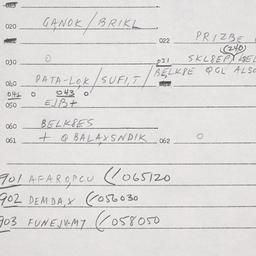 020 GANOK/BRIKL
022 PRIZBE
(240)
030 0 031 SKL8EP
060 PATA-LOK/SUFI,T/BELK8E QGL ALSO
041 0 043 0
050 EJB+
060 BELK8ES
061 + QBALAXSNDIK 062 0
901 AFAROPCU (/065120
902 DEMDA,X (/056030
903 FUNEJV-M7 (/058050